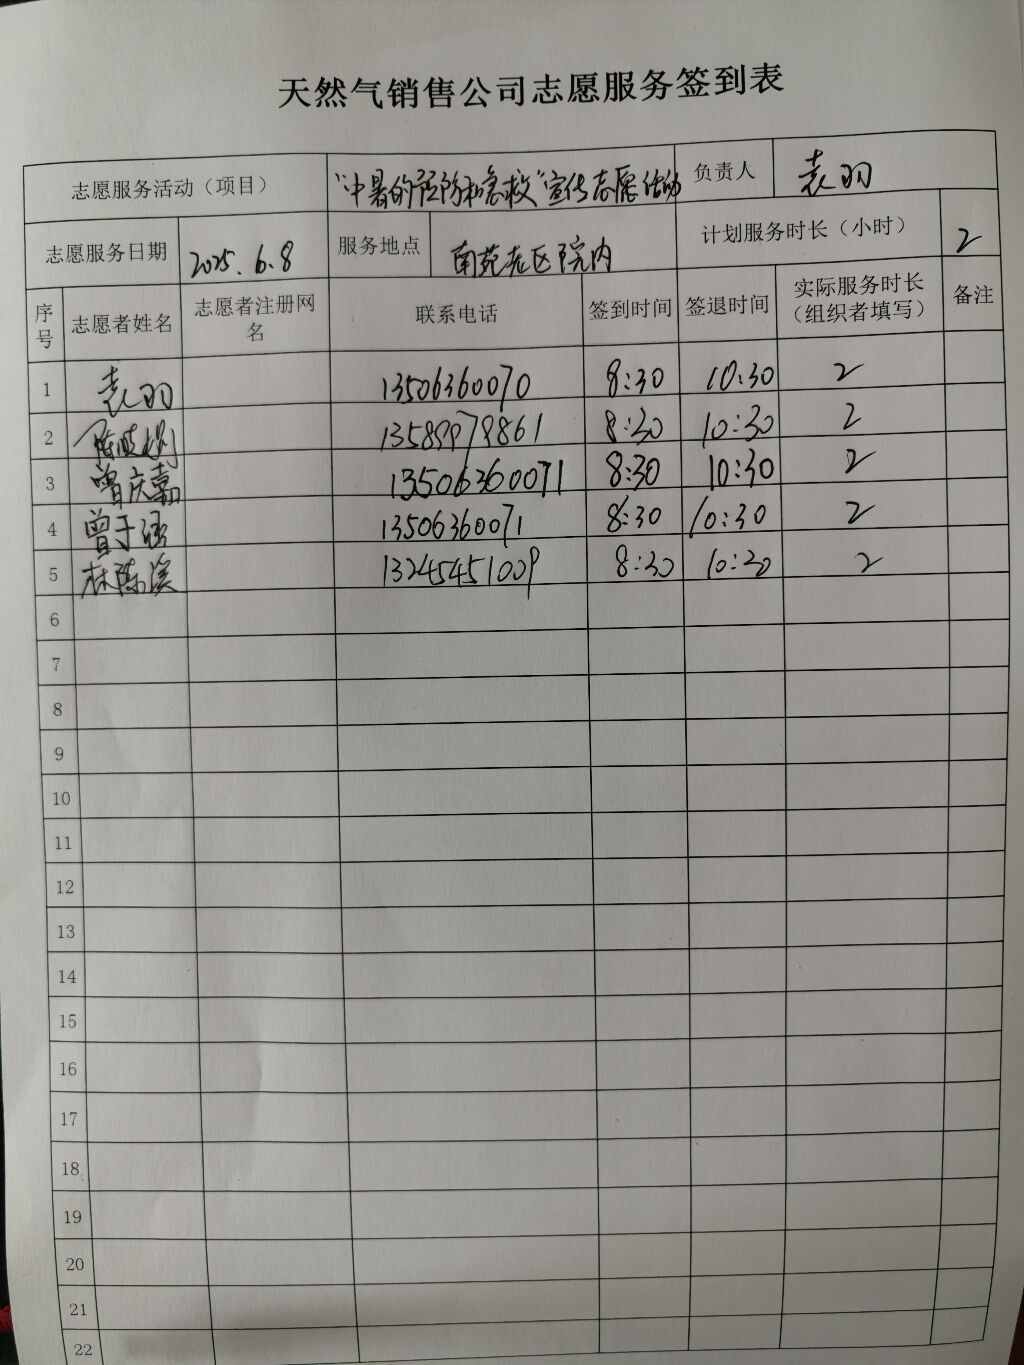 天然气销售公司志愿服务签到表
志愿服务活动（项目） “中暑的预防和急救”宣传志愿活动 负责人 袁羽
志愿服务日期 2025.6.8 服务地点 南苑老区院内 计划服务时长（小时） 2
序号 志愿者姓名 志愿者注册网名 联系电话 签到时间 签退时间 实际服务时长（组织者填写） 备注
1 袁羽 13506360070 8:30 10:30 2
2 13589979861 8:30 10:30 2
3 曾庆嘉 13506360071 8:30 10:30 2
4 曾于涵 13506360071 8:30 10:30 2
5 林陈溪 13245451009 8:30 10:30 2
6
7
8
9
10
11
12
13
14
15
16
17
18
19
20
21
22